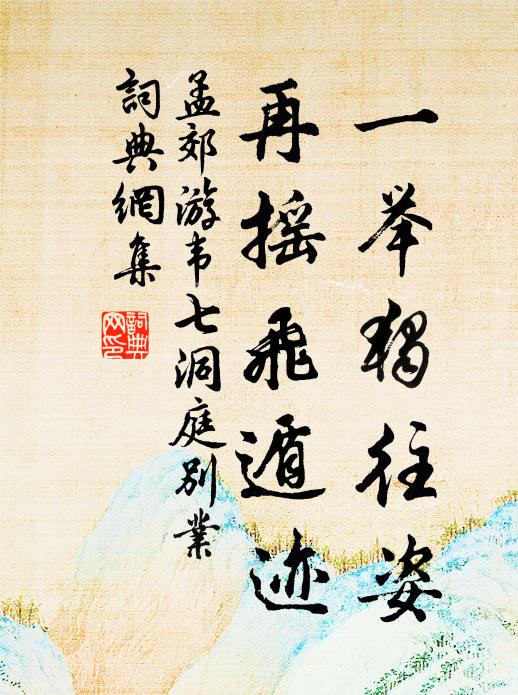 一举独往姿
再摇飞遁迹
孟郊游韦七洞庭别業
詞典網集
詞典网印